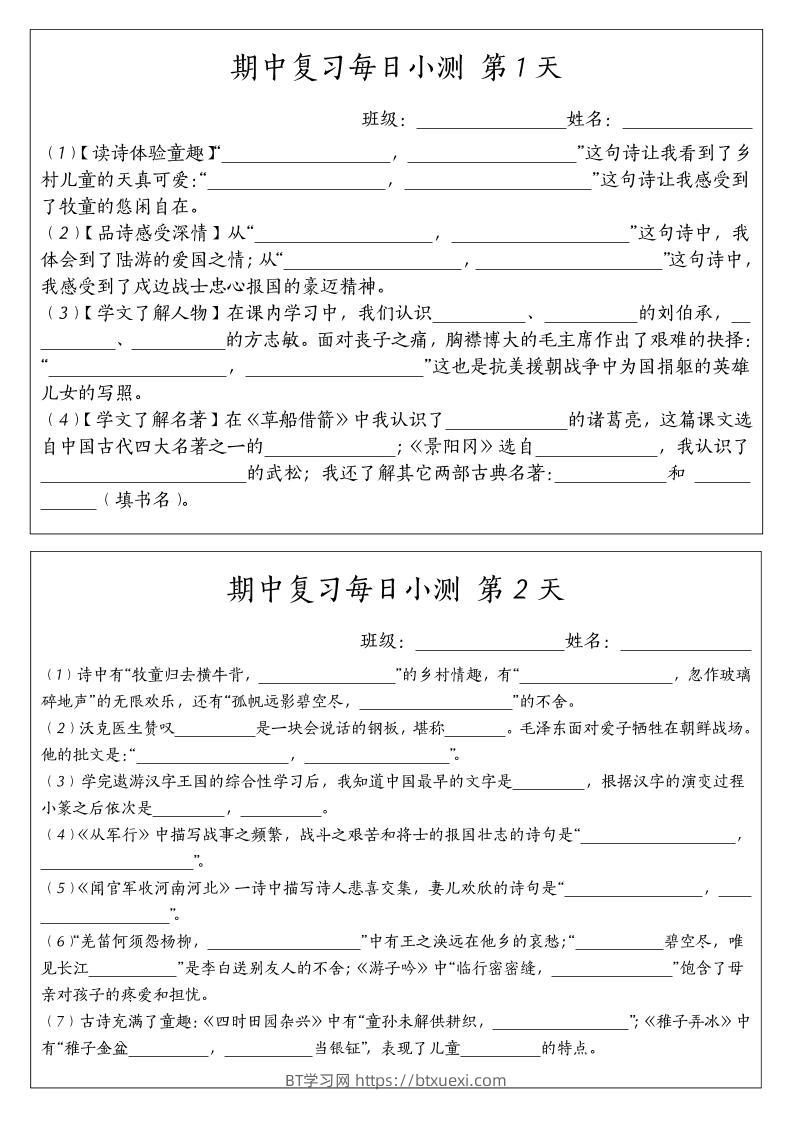 期中复习每日小测 第1天
班级：______________姓名：____________
（1）【读诗体验童趣】“________________，________________”这句诗让我看到了乡
村儿童的天真可爱；“________________，________________”这句诗让我感受到
了牧童的悠闲自在。
（2）【品诗感受深情】从“________________，________________”这句诗中，我
体会到了陆游的爱国之情；从“________________，________________”这句诗中，
我感受到了戍边战士忠心报国的豪迈精神。
（3）【学文了解人物】在课内学习中，我们认识________、________的刘伯承，__
_______、_________的方志敏。面对丧子之痛，胸襟博大的毛主席作出了艰难的抉择：
“________________，________________”这也是抗美援朝战争中为国捐躯的英雄
儿女的写照。
（4）【学文了解名著】在《草船借箭》中我认识了____________的诸葛亮，这篇课文选
自中国古代四大名著之一的____________；《景阳冈》选自____________，我认识了
____________________的武松；我还了解其它两部古典名著：__________和 _____
_____（填书名）。
期中复习每日小测 第2天
班级：______________姓名：____________
（1）诗中有“牧童归去横牛背，______________”的乡村情趣，有“________________，忽作玻璃
碎地声”的无限欢乐，还有“孤帆远影碧空尽，________________”的不舍。
（2）沃克医生赞叹_________是一块会说话的钢板，堪称_______。毛泽东面对爱子牺牲在朝鲜战场。
他的批文是：“________________，________________”。
（3）学完遨游汉字王国的综合性学习后，我知道中国最早的文字是________，根据汉字的演变过程
小篆之后依次是________，_________。
（4）《从军行》中描写战事之频繁，战斗之艰苦和将士的报国壮志的诗句是“________________，
________________”。
（5）《闻官军收河南河北》一诗中描写诗人悲喜交集，妻儿欢欣的诗句是“________________，____
______________”。
（6）“羌笛何须怨杨柳，________________”中有王之涣远在他乡的哀愁；“_________碧空尽，唯
见长江_________”是李白送别友人的不舍；《游子吟》中“临行密密缝，____________”饱含了母
亲对孩子的疼爱和担忧。
（7）古诗充满了童趣：《四时田园杂兴》中有“童孙未解供耕织，______________”；《稚子弄冰》中
有“稚子金盆________，_________当银钲”，表现了儿童________的特点。
BT学习网 https://btxuexi.com